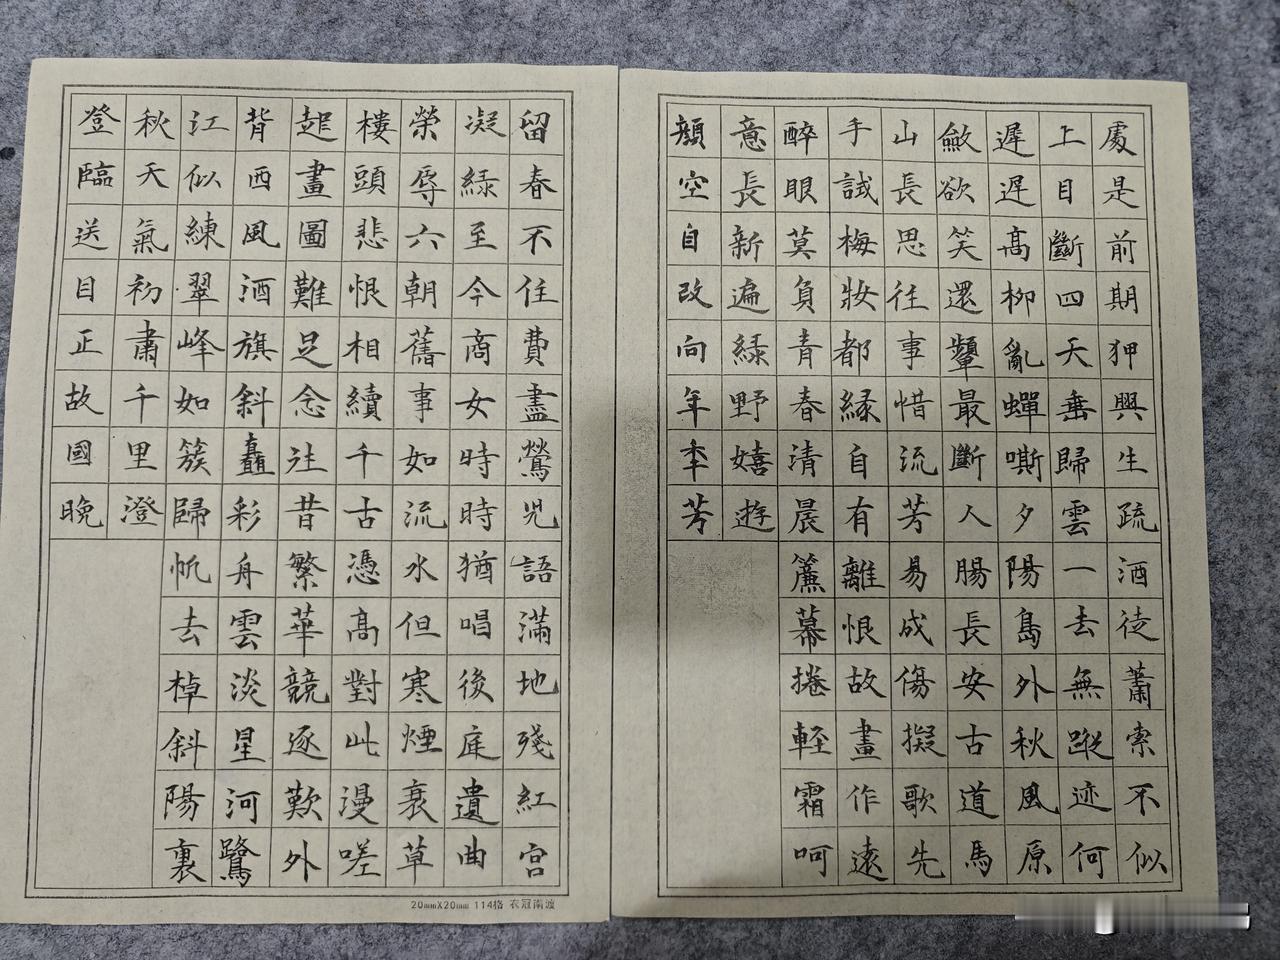 登臨送目正故國晚
秋天氣初肅千里澄
江似練翠峰如簇歸帆去棹斜陽裏
背西風酒旗斜矗彩舟雲淡星河鷺
起畫圖難足念往昔繁華競逐歎外
樓頭悲恨相續千古憑高對此漫嗟
榮辱六朝舊事如流水但寒煙衰草
凝綠至今商女時時猶唱後庭遺曲
留春不住費盡鶯兒語滿地殘紅宮
20mmX20mm 114格 衣冠南渡
顏空自改向年秊芳
意長新遍綠野嬉遊
醉眼莫負青春清晨簾幕捲輕霜呵
手試梅妝都緣自有離恨故畫作遠
山長思往事惜流芳易成傷擬歌先
斂欲笑還顰最斷人腸長安古道馬
遲遲高柳亂蟬嘶夕陽島外秋風原
上目斷四天垂歸雲一去無蹤迹何
處是前期狎興生疏酒徒蕭索不似